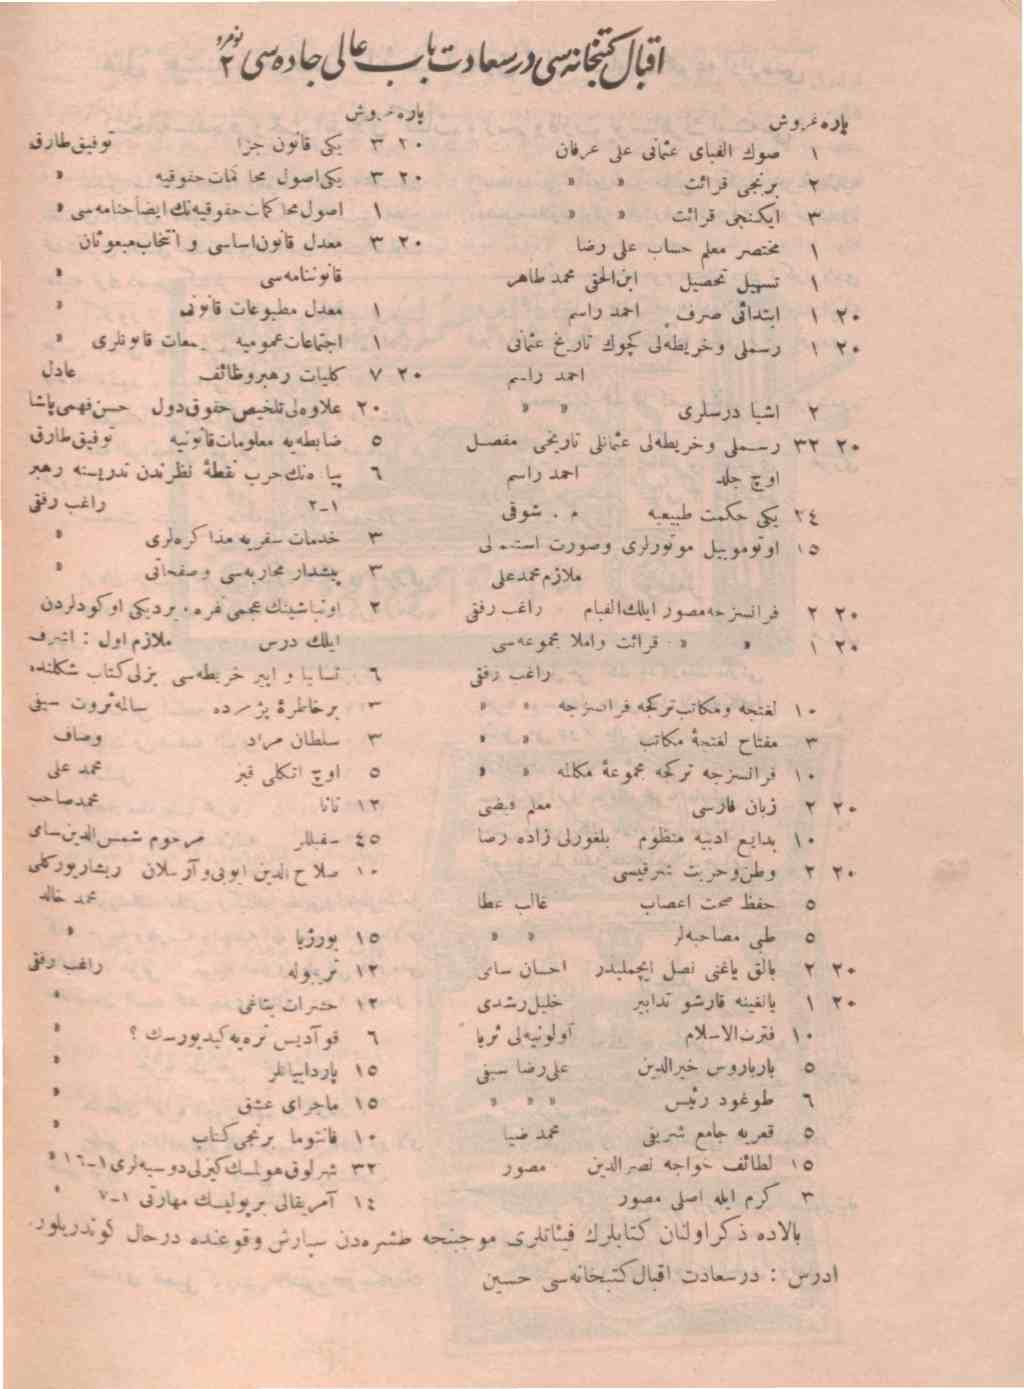 اقبال کتبخانه‌سی درسعادت باب عالی جاده‌سی نومرو ٢
پاره غروش
١ صوك الفبای عثمانی علی عرفان
٢ برنجی قرائت » »
٣ ایكنجی قرائت » »
١ مختصر معلم حساب علی رضا
١ تسهیل تحصیل ابن‌الحقی محمد طاهر
٢٠ ١ ابتدائی صرف احمد راسم
٢٠ ١ رسملی وخریطه‌لی كچوك تاریخ عثمانی
احمد راسم
٢ اشیا درسلری » »
٢٠ ٣٢ رسملی وخریطه‌لی عثمانلی تاریخی مفصل
اوچ جلد احمد راسم
٢٤ یكی حكمت طبیعیه م. شوقی
١٥ اوتوموبیل موتورلری وصورت استعمالی
ملازم محمدعلی
٢٠ ٢ فرانسزجه مصور ایلك الفبام راغب رفقی
٢٠ ١ » » قرائت واملا مجموعه‌سی
راغب رفقی
١٠ لغتچه ومكاتب تركجه فرانسزجه » »
٣ مفتاح لغتچهٔ مكاتب » »
١٠ فرانسزجه تركجه مجموعهٔ مكالمه » »
٢٠ ٢ زبان فارسی معلم فیضی
١٠ بدایع ادبیه منظوم بلغورلی زاده رضا
٢٠ ٢ وطن وحریت شرقیسی
٥ حفظ صحت اعصاب غالب عطا
٥ طبی مصاحبه‌لر » »
٢٠ ٢ بالق یاغنی نصل ایچملیدر احسان سامی
٢٠ ١ یانغینه قارشو تدابیر خلیل رشدی
١٠ فترت‌الاسلام آولونیه‌لی ثریا
٥ بارباروس خیرالدین علی رضا سیفی
٦ طوغود رئیس » » »
٥ قعریه جامع شریفی محمد ضیا
١٥ لطائف خواجه نصرالدین مصور
٣ كرم ایله اصلی مصور
پاره غروش
٢٠ ٣ یكی قانون جزا توفیق طارق
٢٠ ٣ یكی اصول محاكمات حقوقیه »
١ اصول محاكمات حقوقیه‌نك ایضاحنامه‌سی »
٢٠ ٣ معدل قانون اساسی و انتخاب مبعوثان
قانوننامه‌سی »
١ معدل مطبوعات قانونی »
١ اجتماعات عمومیه جمعات قانونلری »
٢٠ ٧ كلیات رهبر وظائف عادل
٢٠ علاوه‌لی تلخیص حقوق دول حسن فهمی پاشا
٥ ضابطه‌یه معلومات قانونیه توفیق طارق
٦ پیاده‌نك حرب نقطهٔ نظرندن تدریسنه رهبر
١-٢ راغب رفقی
٣ خدمات سفریه مذاكره‌لری »
٣ پیشدار محاربه‌سی وصفحاتی »
٢ اونباشینك عجمی نفره ویردیكی اوكودلردن
ایلك درس ملازم اول : اشرف
٦ تسالیا و اپیر خریطه‌سی بزلی كتاب شكلنده
٣ برخاطرهٔ پژمرده سالمه ثروت سیفی
٣ سلطان مراد وصاف
٥ اوچ اتكلی قیز محمد علی
١٢ نانا محمدصاحب
٤٥ سفیللر مرحوم شمس‌الدین سامی
١٠ صلاح الدین ایوبی و آرسلان ریشار یوركلی
محمد خالد
١٥ بورژیا »
١٢ تریبوله راغب رفقی
١٢ حشرات یتاغی »
٦ قوآدیس نره‌یه كیدیورسك ؟ »
١٥ پاردایانلر »
١٥ ماجرای عشق »
١٠ فانتوما برنجی كتاب »
٣٢ شرلوق هولمسك كیزلی دوسیه‌لری ١-١٦ »
١٤ آمریقالی بر پولیسك مهارتی ١-٧ »
بالاده ذكر اولنان كتابلرك فیئاتلری موجبنجه طشره‌دن سپارش وقوعنده درحال كوندریلور.
ادرس : درسعادت اقبال كتبخانه‌سی حسین